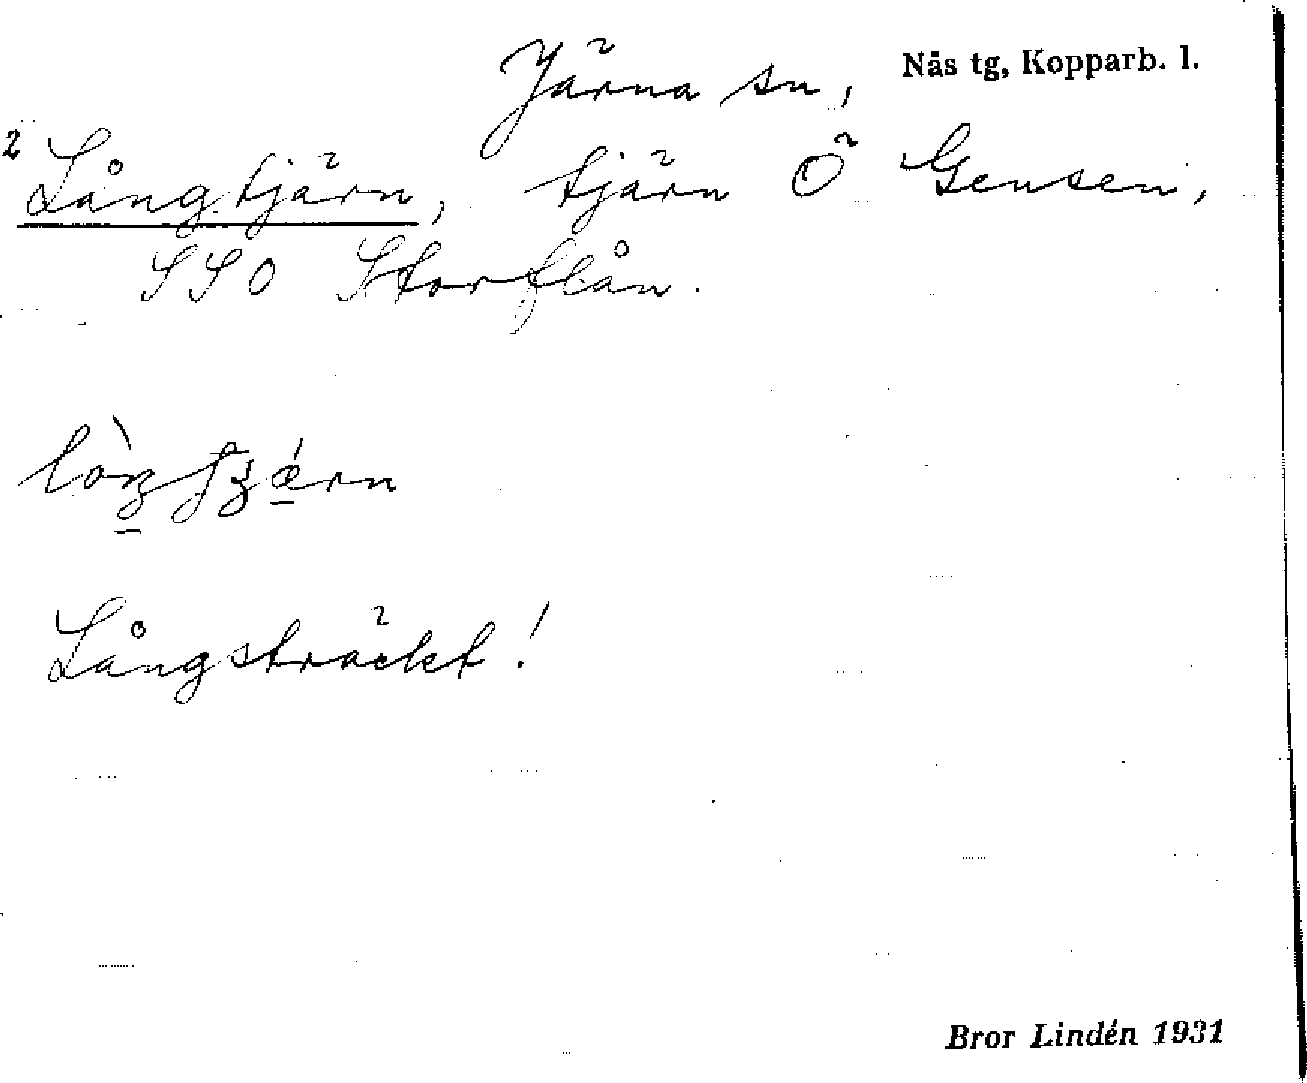 Järna sn, Nås tg, Kopparb. l.
2 Långtjärn, tjärn Ö Gensen,
SSO Storflån.
Långsträckt!
Bror Lindén 1931